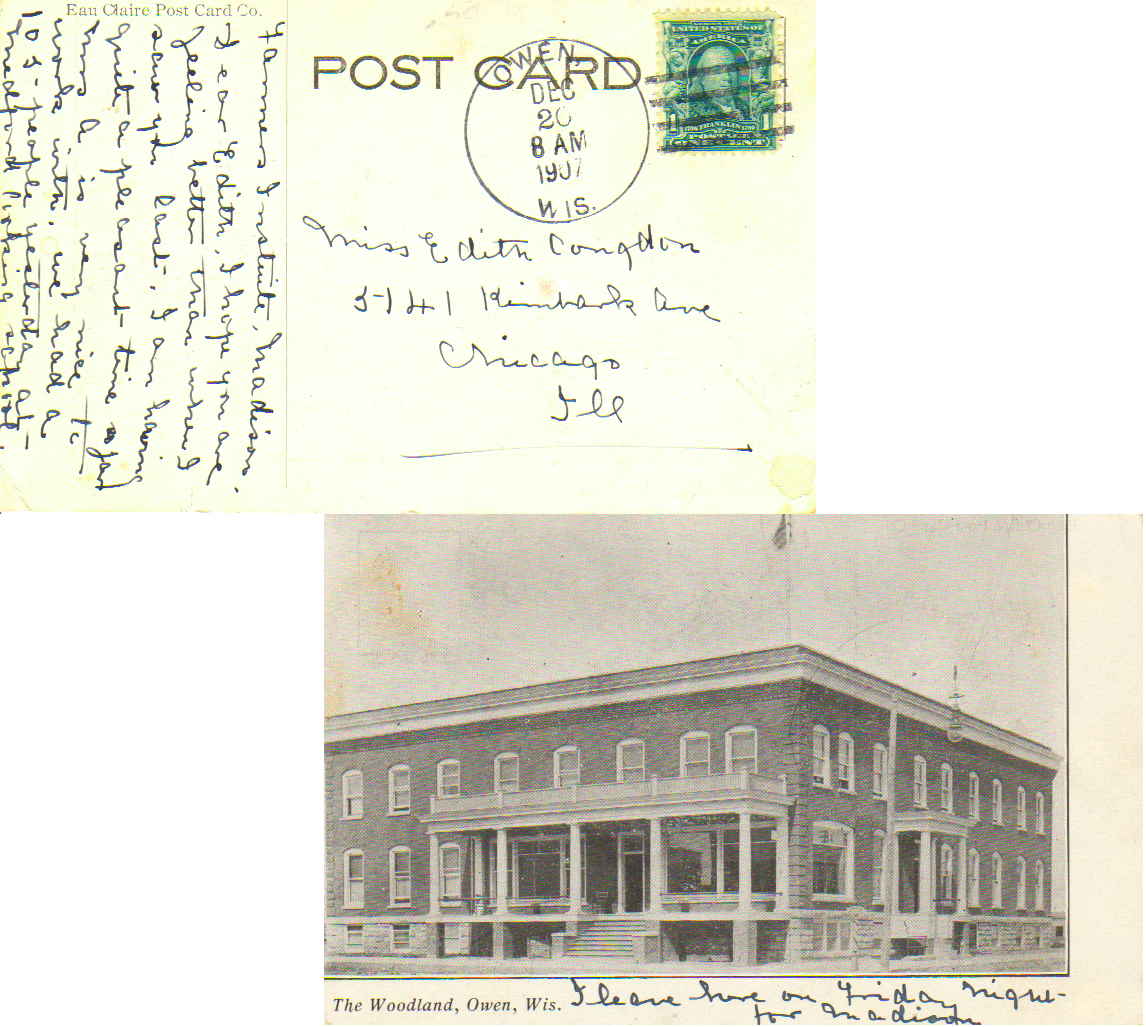 Eau Claire Post Card Co.
POST CARD
OWEN,
DEC
20
8 AM
1907
WIS.
UNITED STATES OF
AMERICA
1 1
FRANKLIN
ONE CENT
Miss Edith Congdon
5141 Kimbark Ave
Chicago
Ill
Farmers Institute, Madison.
Dear Edith, I hope you are
feeling better than when I
saw you last. I am having
quite a pleasant time so far
is very nice to
work with. We had a
105 people yesterday at
Medford school.
The Woodland, Owen, Wis.
I leave here on Friday night
for Madison